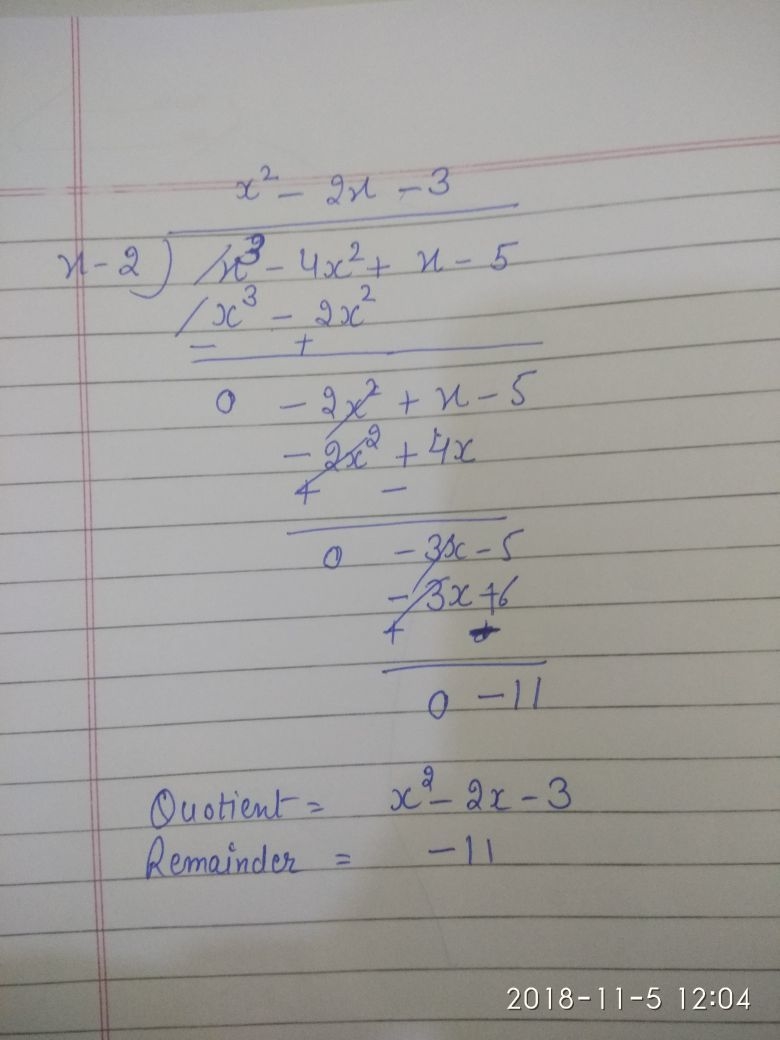 x² - 2x - 3
x - 2 ) x³ - 4x² + x - 5
x³ - 2x²
- +
0 - 2x² + x - 5
- 2x² + 4x
+ -
0 - 3x - 5
- 3x + 6
+
0 - 11
Quotient = x² - 2x - 3
Remainder = - 11
2018-11-5 12:04